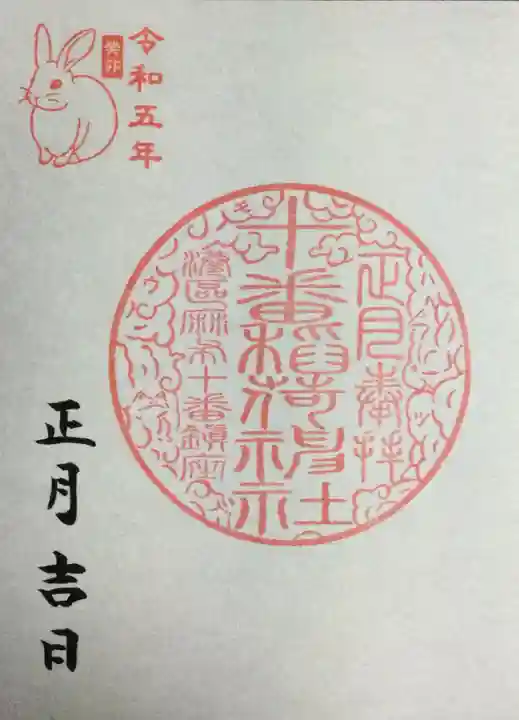 令和五年
癸卯
正月奉拝
十番稲荷神社
港區麻布十番鎮座
正月吉日